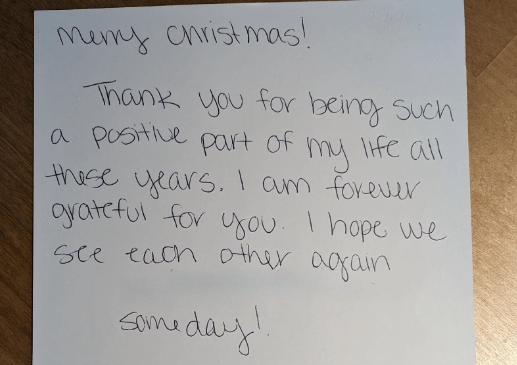 Merry Christmas!
Thank you for being such
a positive part of my life all
these years. I am forever
grateful for you. I hope we
see each other again
someday!